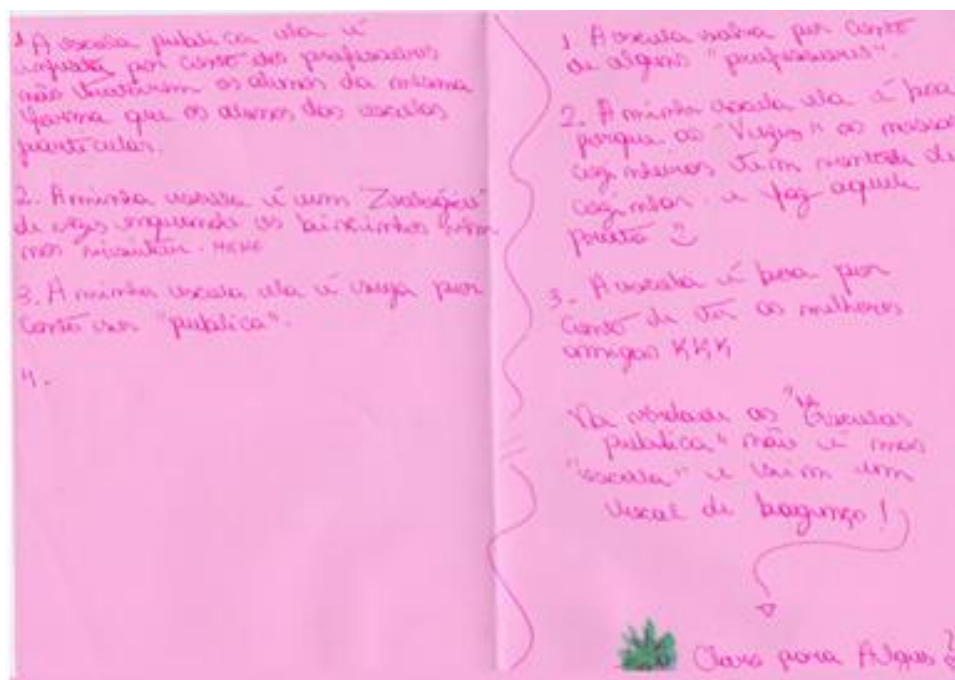 1 A escola publica ela é
injusta por conto dos professores
não tratarem os alunos da mesma
forma que os alunos das escolas
particular.
2. A minha escola é um "Zoológico"
de vezes enquando os bixinhos vêm
nos visitar. HEHE
3. A minha escola ela é por
conto "publica".
4.
1. A escola por conto
de alguns "professores".
2. A minha escola ela é boa
porque as "Vezes" as nossas
cozinheiras tem vontade de
cozinhar e faz aquele
prato
3. A escola é boa por
conto de ter os melhores
amigos KKK
Na verdade as "Escolas
publica" não é mas
"escola" e sim um
local de bagunço!
Claro para Algus